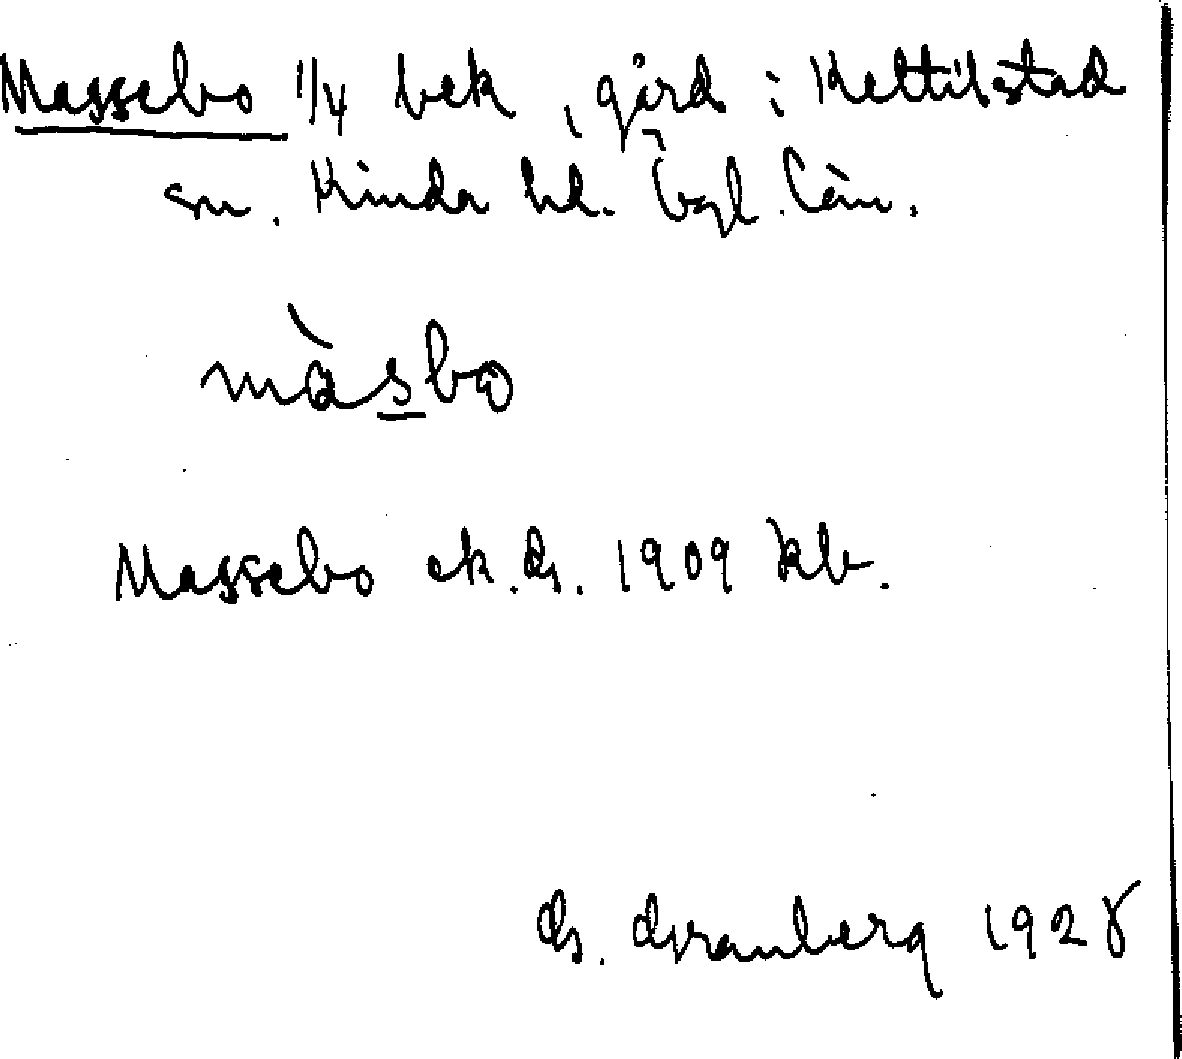 Massebo 1/4 bek, gård i Kettilstad
sn. Kinda hd. Ögl. län.
màsbo
Massebo ek. G. 1909 kb.
G. Granberg 1928